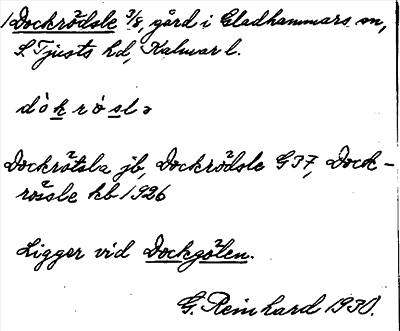 Dockrödsle 3/8, gård i Gladhammars sn,
S. Tjusts hd, Kalmar l.
dòkróslə
Dockrötsla jb, Dockrödsle G37, Dock-
rössle kb 1926
Ligger vid Dockgölen.
G. Reinhard 1930.